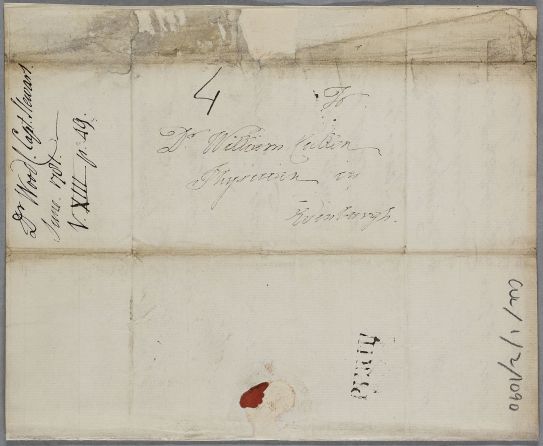 Dr Wood. Capt. Stewart.
June 1781.
V. XIII p. 49.
4
To
Dr William Cullen
Physician in
Edinburgh.
PERTH
Cul/1/2/1090